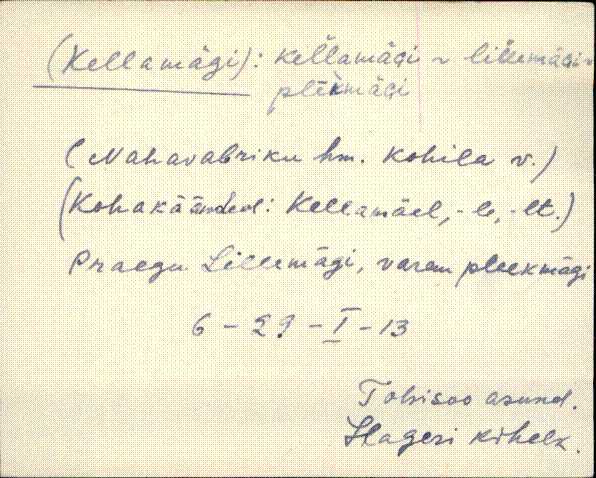 (Kellamägi): kellamäGi ~ lillemäGi ~
plèkmäGi
(Nahavabriku hm. Kohila v.)
(Kohakäänded: Kellamäel, -le, -lt.)
Praegu Lillemägi, varem plekmägi
6 - 29 - I - 13
Tohisoo asund.
Hageri kihelk.